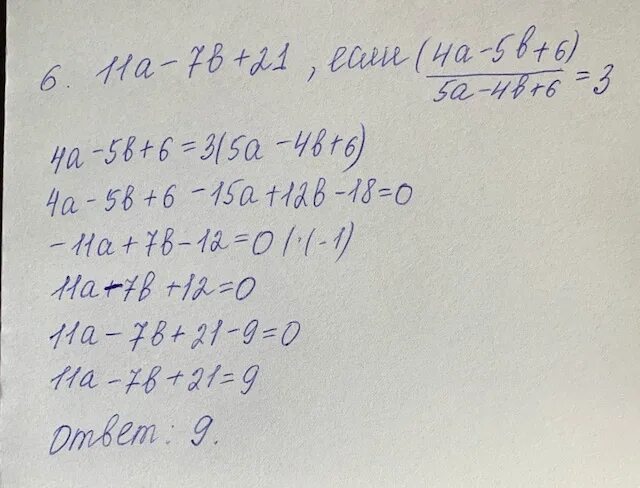 6. 11а - 7в + 21, если (4а - 5в + 6) / (5а - 4в + 6) = 3
4а - 5в + 6 = 3(5а - 4в + 6)
4а - 5в + 6 - 15а + 12в - 18 = 0
- 11а + 7в - 12 = 0 | · (-1)
11а - 7в + 12 = 0
11а - 7в + 21 - 9 = 0
11а - 7в + 21 = 9
Ответ: 9.